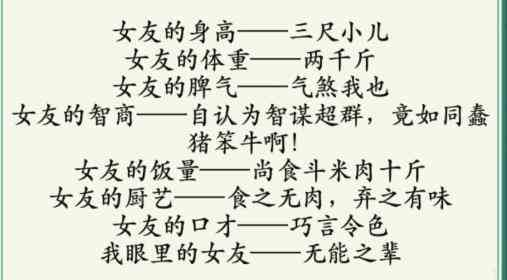 女友的身高——三尺小儿
女友的体重——两千斤
女友的脾气——气煞我也
女友的智商——自认为智谋超群，竟如同蠢
猪笨牛啊！
女友的饭量——尚食斗米肉十斤
女友的厨艺——食之无肉，弃之有味
女友的口才——巧言令色
我眼里的女友——无能之辈